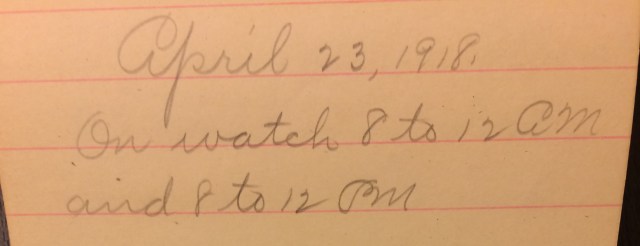 April 23, 1918.
On watch 8 to 12 AM
and 8 to 12 PM